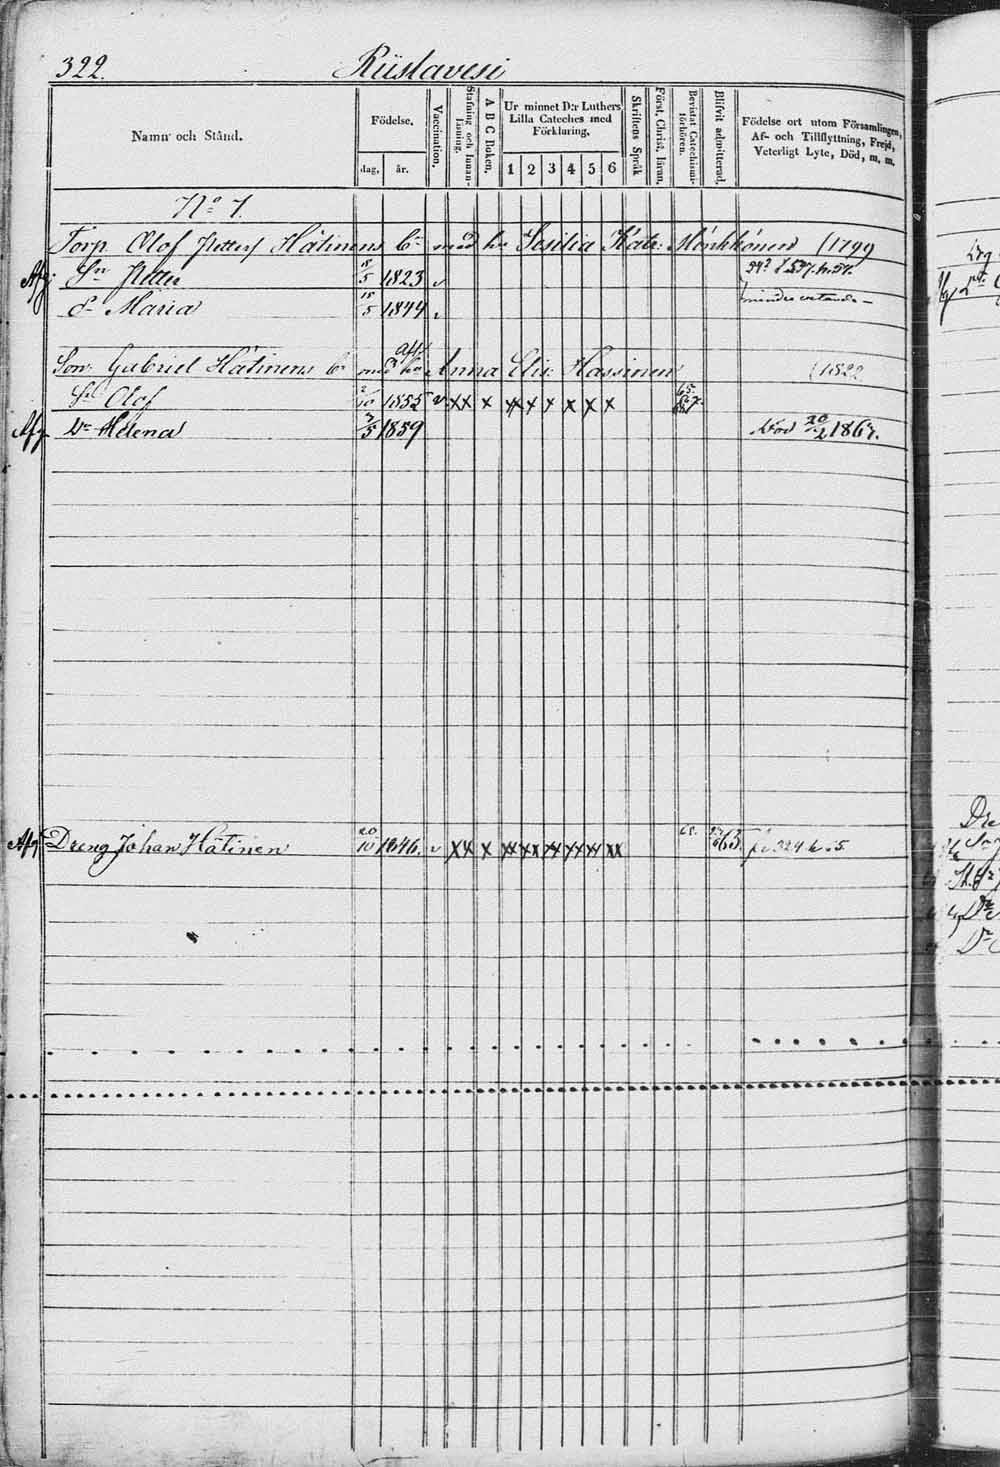 322. Riistavesi
Namn och Stånd.
Födelse.
dag. år.
Vaccination.
Stafning och Innan-läsning.
A B C Boken.
Ur minnet D:r Luthers Lilla Cateches med Förklaring.
1 2 3 4 5 6
Skriftens Språk
Först. Christ. läran.
Bevistat Catechismi-förhören.
Blifvit admitterad.
Födelse ort utom Församlingen, Af- och Tillflyttning, Frejd, Veterligt Lyte, Död, m. m.
No 1.
Torp. Olof Petterss. Hätinens med hu Katr. Mönkkönen (1799
Afg. Sn Petter 5 1823 v
Dr Maria 15/5 1844 v
Son Gabriel Hätinens med hu Anna Elis: Hassinen (1822
Sn Olof 10 1855 v xx x xx x x x x x 65. 67.
Afg Dr Helena 7/5 1859 Död 20/2 1867.
Afg Dreng Johan Hätinen 20/10 1846. v xx x xx xx xx xx xx xx 63. 324